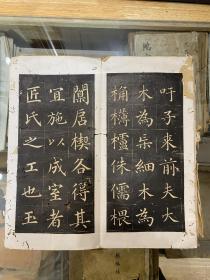 吁子来前夫大
木為杗細木為
桷欂櫨侏儒椳
闑扂楔各得其
宜施以成室者
匠氏之工也玉